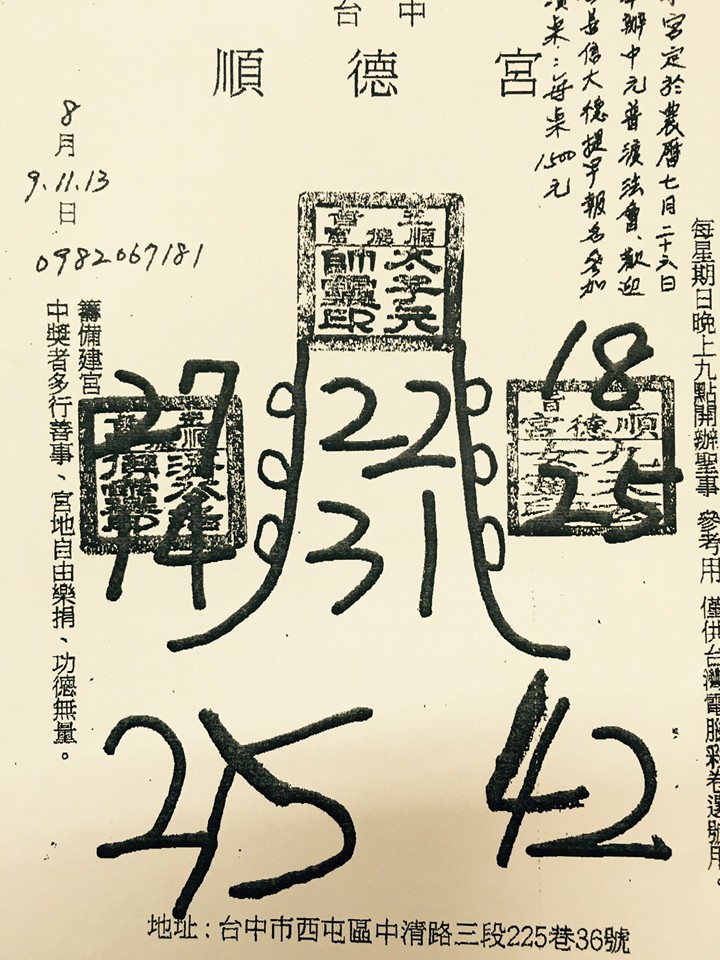 台中
順德宮
宮定於農曆七月二十六日
辦中元普渡法會、歡迎
善信大德提早報名參加
桌：每桌1500元
8月
9.11.13
日
0982067181
每星期日晚上九點開辦聖事 參考用 僅供台灣電腦彩卷選號用。
順德宮
太子元
帥靈印
籌備建宮
中獎者多行善事、宮地自由樂捐、功德無量。
27
22
18
順德宮
25
14
31
25
42
地址：台中市西屯區中清路三段225巷36號